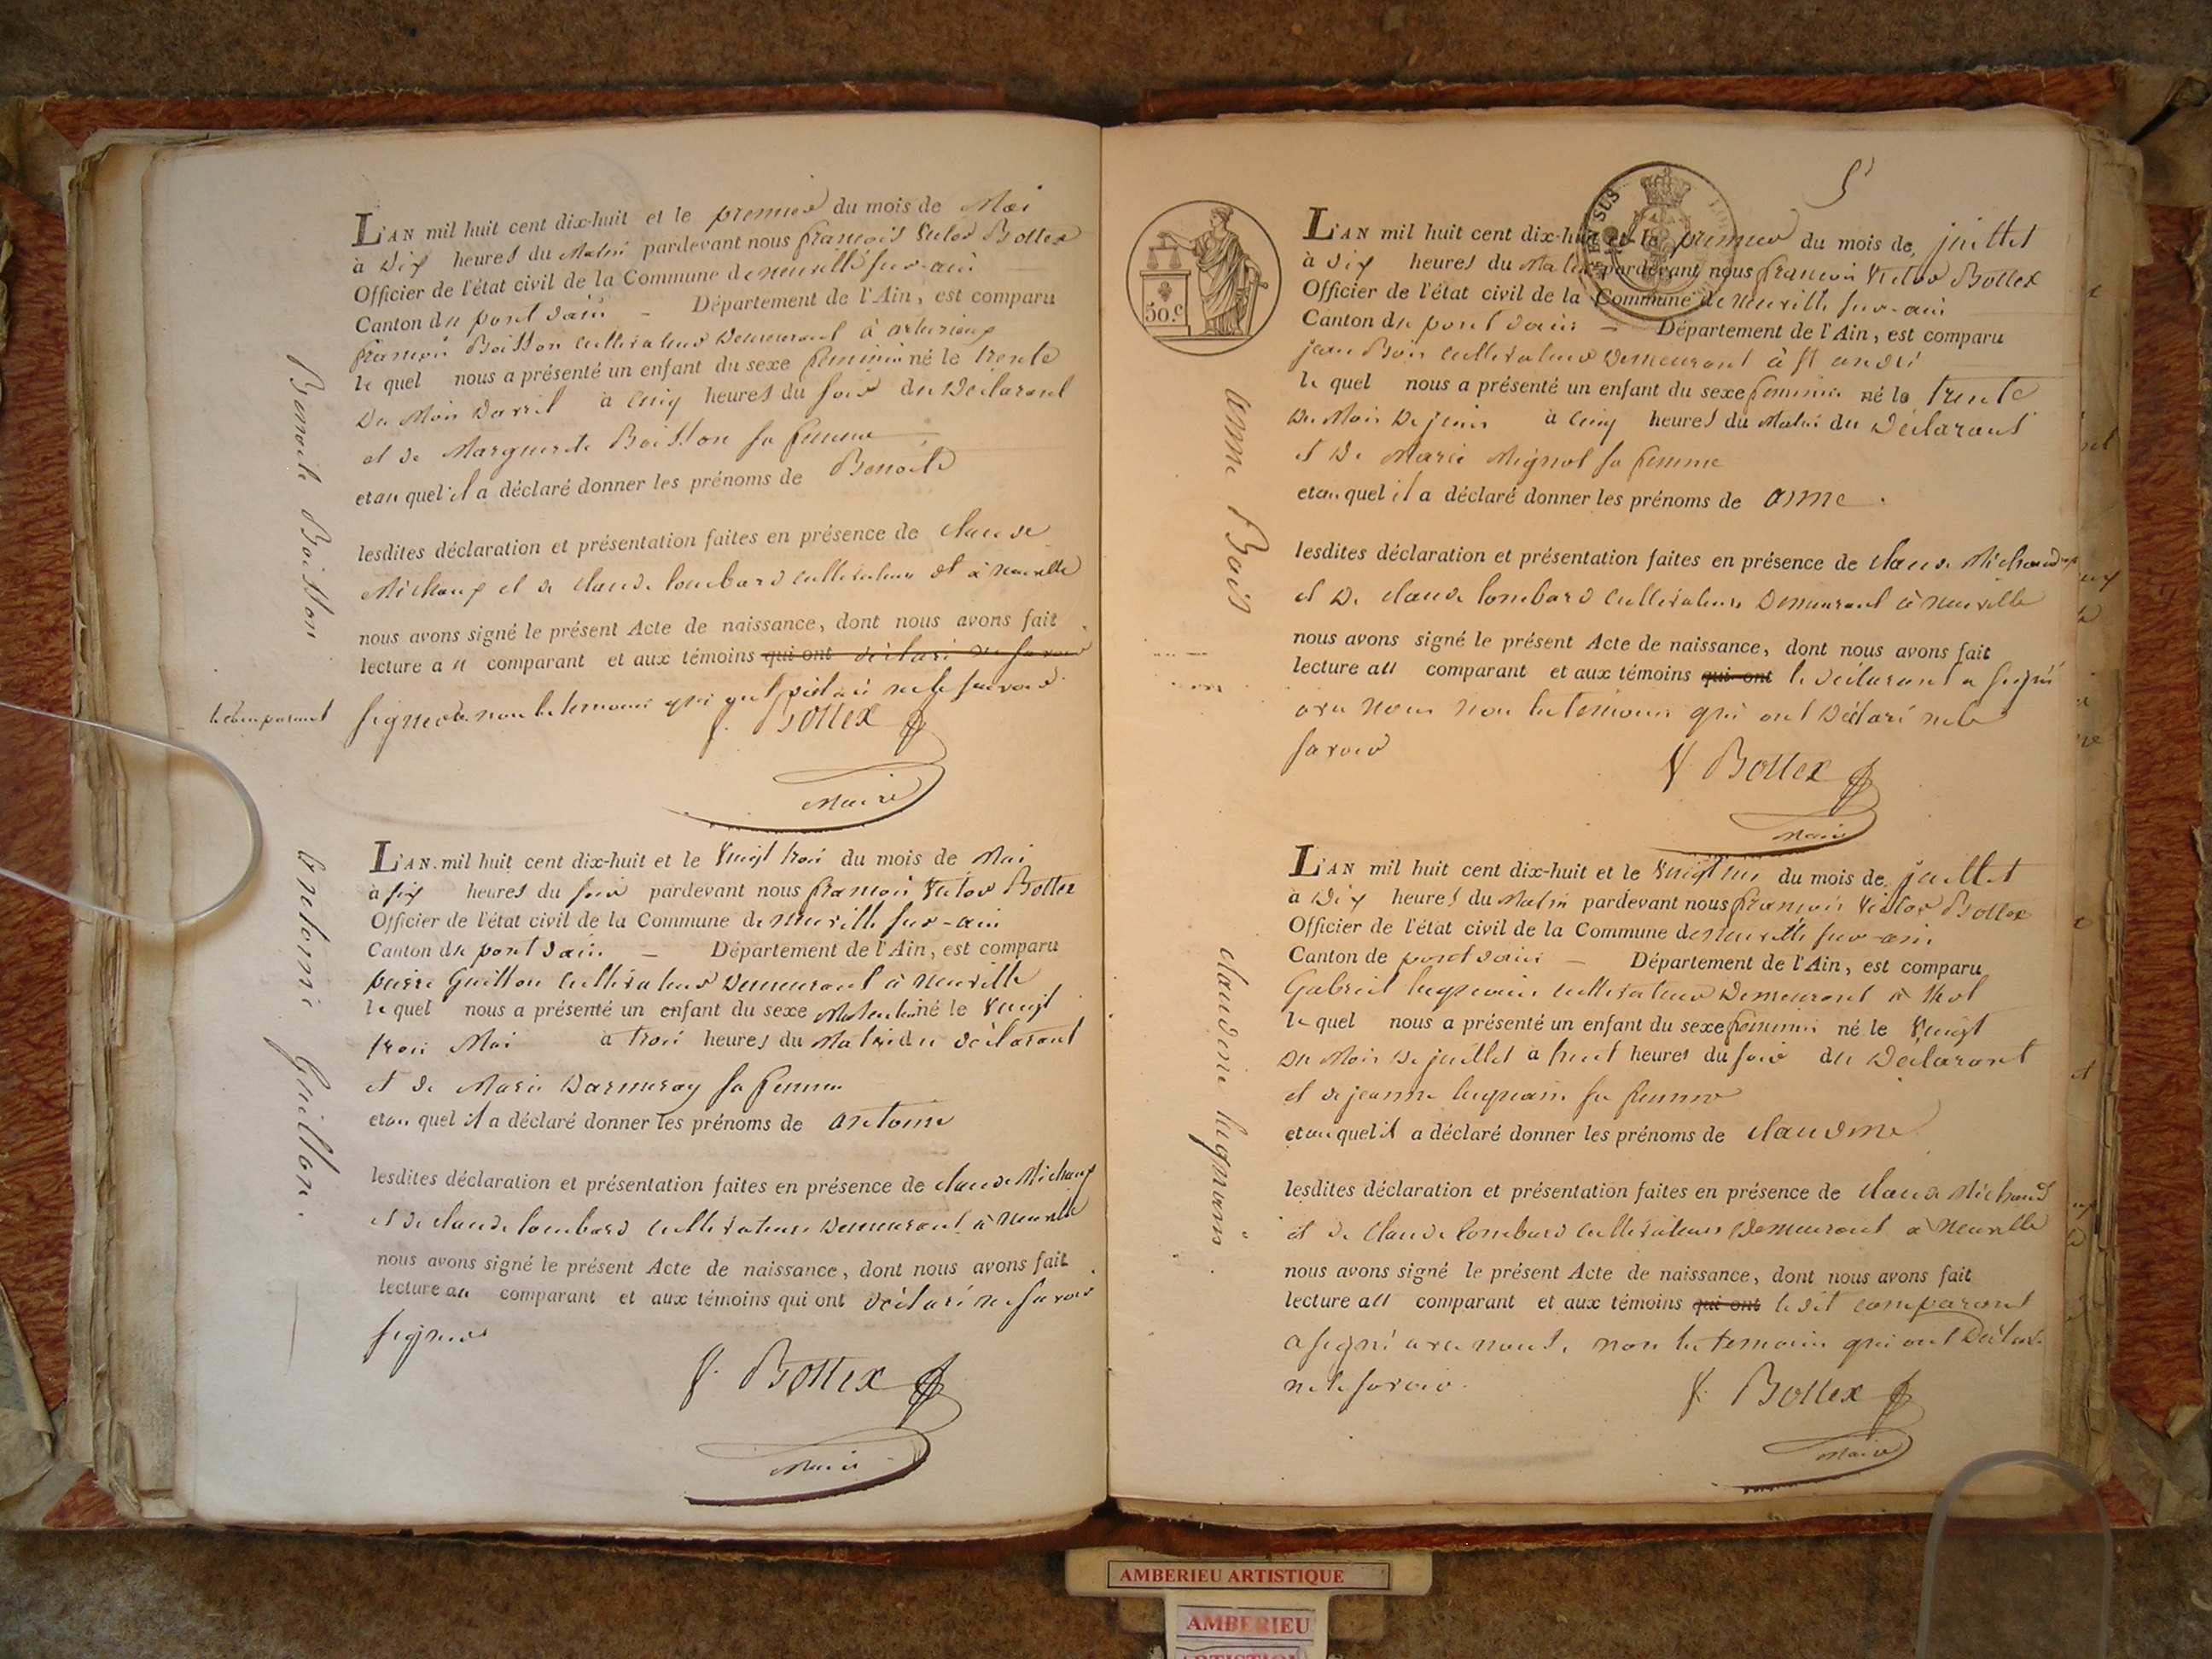 L'AN mil huit cent dix-huit et le premier du mois de Mai
à Dix heures du Matin pardevant nous françois Victor Bottex
Officier de l'état civil de la Commune de neuville sur-ain
Canton du pont dain – Département de l'Ain, est comparu
françois Boisson cultivateur Demeurant à
le quel nous a présenté un enfant du sexe feminin né le trente
Du Mois Davril à cinq heures du soir du Déclarant
et de Marguerite Boisson sa femme
et au quel il a déclaré donner les prénoms de Benoite
lesdites déclaration et présentation faites en présence de claude
Michaux et de claude lombard cultivateurs à neuville
nous avons signé le présent Acte de naissance, dont nous avons fait
lecture au comparant et aux témoins qui ont déclaré ne savoir
le comparant
signer non les temoins qui ont déclaré ne le savoir
f. Bottex
Maire
Benoite Boisson
L'AN mil huit cent dix-huit et le Vingt trois du mois de Mai
à six heures du soir pardevant nous françois Victor Bottex
Officier de l'état civil de la Commune de neuville sur-ain
Canton du pont dain – Département de l'Ain, est comparu
pierre Guillon cultivateur Demeurant à neuville
le quel nous a présenté un enfant du sexe Masculin né le Vingt
trois Mai à trois heures du Matin du déclarant
et de Marie Darmeray sa femme
et au quel il a déclaré donner les prénoms de antoine
lesdites déclaration et présentation faites en présence de claude Michaux
et de claude lombard cultivateurs Demeurant à neuville
nous avons signé le présent Acte de naissance, dont nous avons fait
lecture au comparant et aux témoins qui ont déclaré ne savoir
signer
f. Bottex
Maire
antoine Guillon.
5
50.c
L'AN mil huit cent dix-huit et le premier du mois de juillet
à dix heures du Matin pardevant nous françois Victor Bottex
Officier de l'état civil de la Commune de neuville sur-ain
Canton du pont dain – Département de l'Ain, est comparu
jean Bois cultivateur Demeurant à st andré
le quel nous a présenté un enfant du sexe feminin né le trente
Du Mois De juin à cinq heures du Matin du Déclarant
et De Marie Mignot sa femme
et au quel il a déclaré donner les prénoms de anne.
lesdites déclaration et présentation faites en présence de claude Michaud
et De claude lombard cultivateurs Demeurant à neuville
nous avons signé le présent Acte de naissance, dont nous avons fait
lecture au comparant et aux témoins qui ont le déclarant a signé
avec nous non les temoins qui ont Déclaré ne le
savoir
f. Bottex
Maire
anne Bois
L'AN mil huit cent dix-huit et le Vingt un du mois de juillet
à Dix heures du Matin pardevant nous françois Victor Bottex
Officier de l'état civil de la Commune de neuville sur-ain
Canton de pont dain – Département de l'Ain, est comparu
Gabriel luquain cultivateur Demeurant à thol
le quel nous a présenté un enfant du sexe feminin né le Vingt
Du Mois De juillet à huit heures du soir du Déclarant
et de jeanne luquain sa femme
et au quel il a déclaré donner les prénoms de claudine
lesdites déclaration et présentation faites en présence de claude Michaud
et de claude lombard cultivateurs Demeurant à neuville
nous avons signé le présent Acte de naissance, dont nous avons fait
lecture au comparant et aux témoins qui ont le dit comparant
a signé avec nous, non les temoins qui ont Déclaré
ne le savoir.
f. Bottex
Maire
claudine luquain
AMBERIEU ARTISTIQUE
AMBERIEU
ARTISTIQUE